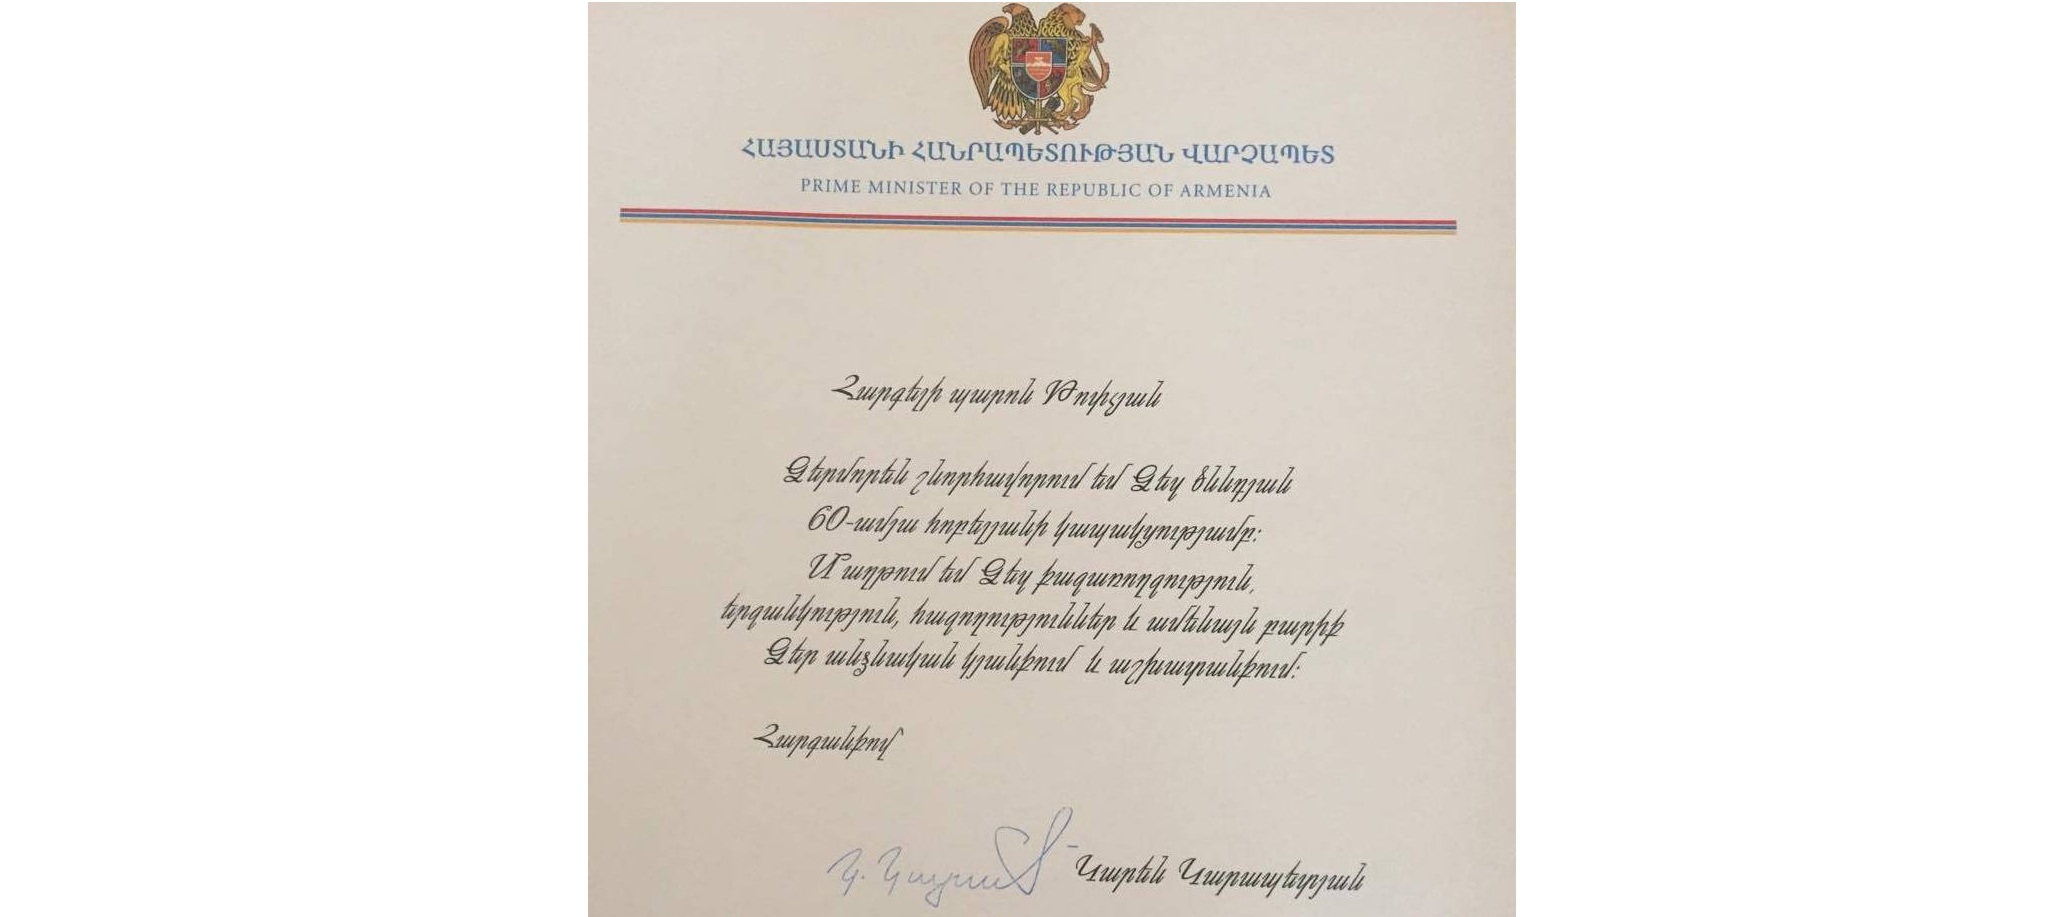 ՀԱՅԱՍՏԱՆԻ ՀԱՆՐԱՊԵՏՈՒԹՅԱՆ ՎԱՐՉԱՊԵՏ
PRIME MINISTER OF THE REPUBLIC OF ARMENIA
Հարգելի պարոն Թուփչյան
Ջերմորեն շնորհավորում եմ Ձեզ ծննդյան
60-ամյա հոբելյանի կապակցությամբ:
Մաղթում եմ Ձեզ քաջառողջություն,
երջանկություն, հաջողություններ և ամենայն բարիք
Ձեր անձնական կյանքում և աշխատանքում:
Հարգանքով
Կարեն Կարապետյան